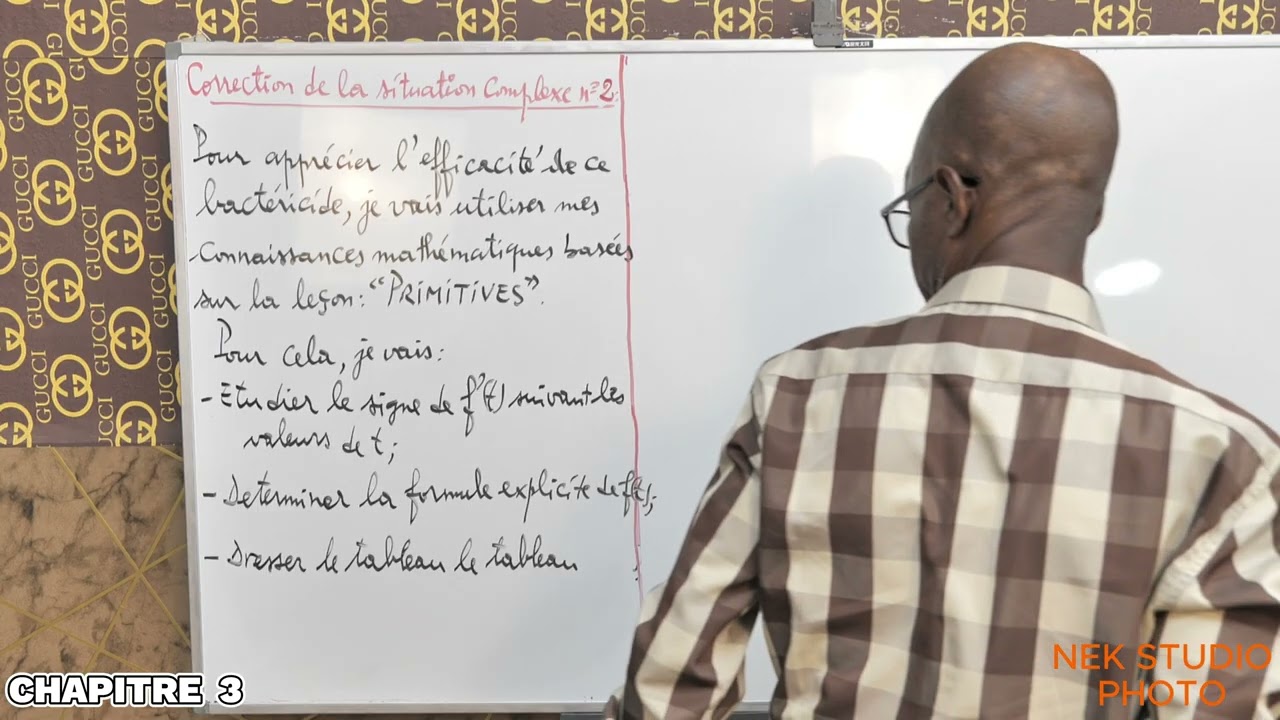 Correction de la situation Complexe n°2:
Pour apprécier l'efficacité de ce
bactéricide, je vais utiliser mes
connaissances mathématiques basées
sur la leçon: "PRIMITIVES".
Pour cela, je vais:
- Etudier le signe de f'(t) suivant les
valeurs de t;
- Déterminer la formule explicite de f(t);
- Dresser le tableau le tableau
CHAPITRE 3
NEK STUDIO
PHOTO
GUCCI
GUCCI
GUCCI
GUCCI
GUCCI
GUCCI